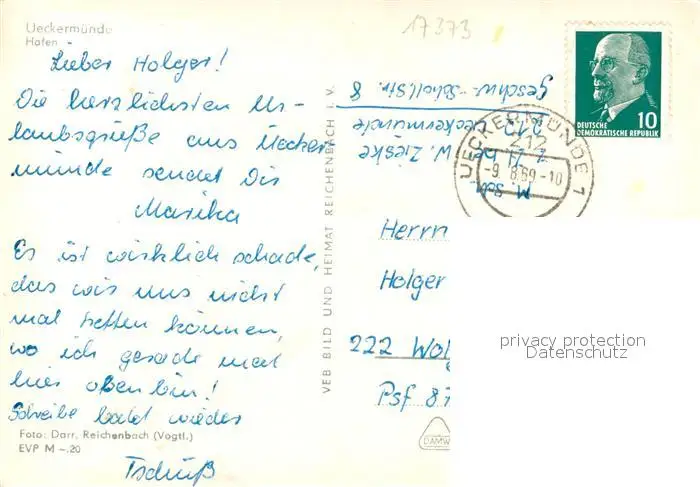 Ueckermünde
Hafen
17373
Lieber Holger!
Die herzlichsten Ur-
laubsgrüße aus Uecker-
münde sendet Dir
Marika
Es ist wirklich schade,
das wir uns nicht
mal treffen können,
wo ich gerade mal
hier oben bin!
Schreibe bald wieder
Tschüß
Foto: Darr, Reichenbach (Vogtl.)
EVP M -.20
VEB BILD UND HEIMAT REICHENBACH I. V.
M. Sch.
z. Zt. bei W. Zieske
212 Ueckermünde
Geschw.-Scholl Str. 8
UECKERMÜNDE 1
212
-9. 8.69-10
10
DEUTSCHE
DEMOKRATISCHE REPUBLIK
Herrn
Holger
222 Wol
Psf 87
DAMW
privacy protection
Datenschutz